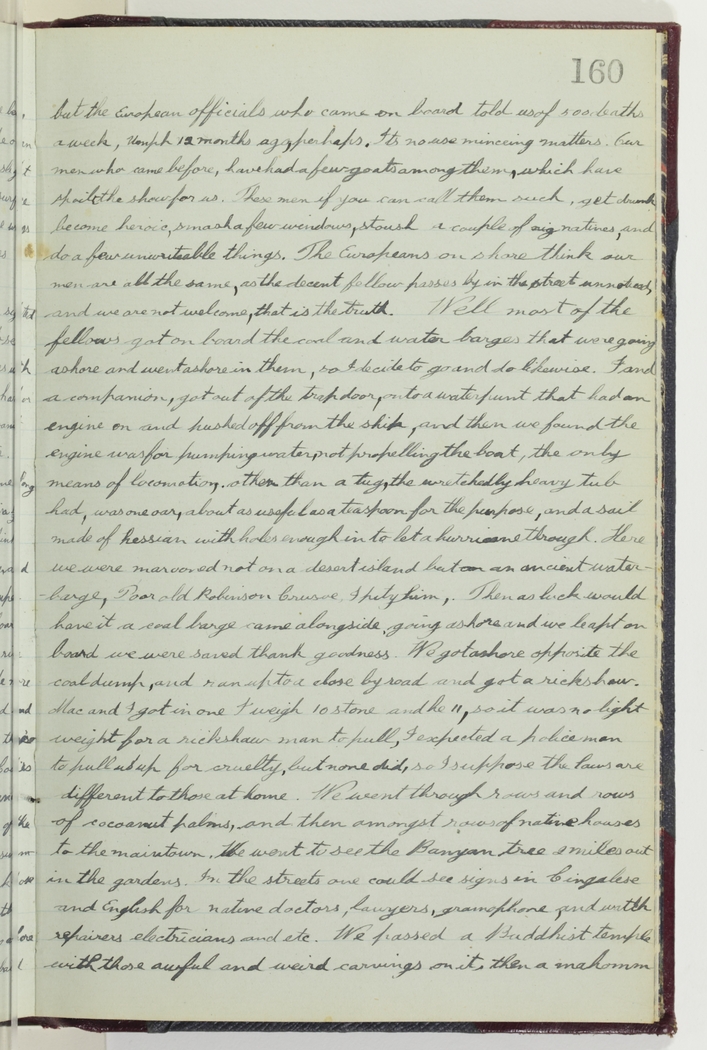 160
but the European officials who came on board told us of 500 deaths
a week, Umph 12 months ago, perhaps. Its no use minceing matters. Our
men who came before, have had a few goats among them, which have
spoilt the show for us. These men if you can call them such, get drunk
become heroic, smash a few windows, stoush a couple of nig natives, and
do a few unwriteable things. The Europeans on shore think our
men are all the same, as the decent fellow passes by in the street unnoticed,
and we are not welcome, that is the truth. Well most of the
fellows got on board the coal and water barges that were going
ashore and went ashore in them, so I decide to go and do likewise. I and
a companion, got out of the trap door, onto a water punt that had an
engine on and pushed off from the ship, and then we found the
engine was for pumping water, not propelling the boat, the only
means of locomotion, other than a tug, the wretchedly heavy tub
had, was one oar, about as useful as a teaspoon for the purpose, and a sail
made of hessian with holes enough in to let a hurricane through. Here
we were marooned not on a desert island but on an ancient water-
-barge, Poor old Robinson Crusoe, I pity him,. Then as luck would
have it a coal barge came alongside, going ashore and we leapt on
board we were saved thank goodness. We got ashore opposite the
coal dump, and ran up to a close by road and got a rickshaw.
Mac and I got in one I weigh 10 stone and he 11, so it was no light
weight for a rickshaw man to pull, I expected a policeman
to pull us up for cruelty, but none did, so I suppose the laws are
different to those at home. We went through rows and rows
of cocoanut palms, and then amongst rows of native houses
to the main town. We went to see the Banyan tree 2 miles out
in the gardens. In the streets one could see signs in Cingalese
and English for native doctors, lawyers, gramophone, and watch
repairers electricians and etc. We passed a Buddhist temple
with those awful and weird carvings on it, then a mahomm